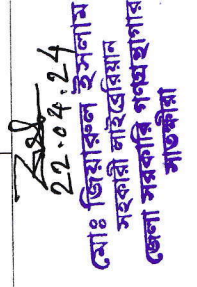 22.04.24
মোঃ জিয়ারুল ইসলাম
সহকারী লাইব্রেরিয়ান
জেলা সরকারি গণগ্রন্থাগার
সাতক্ষীরা